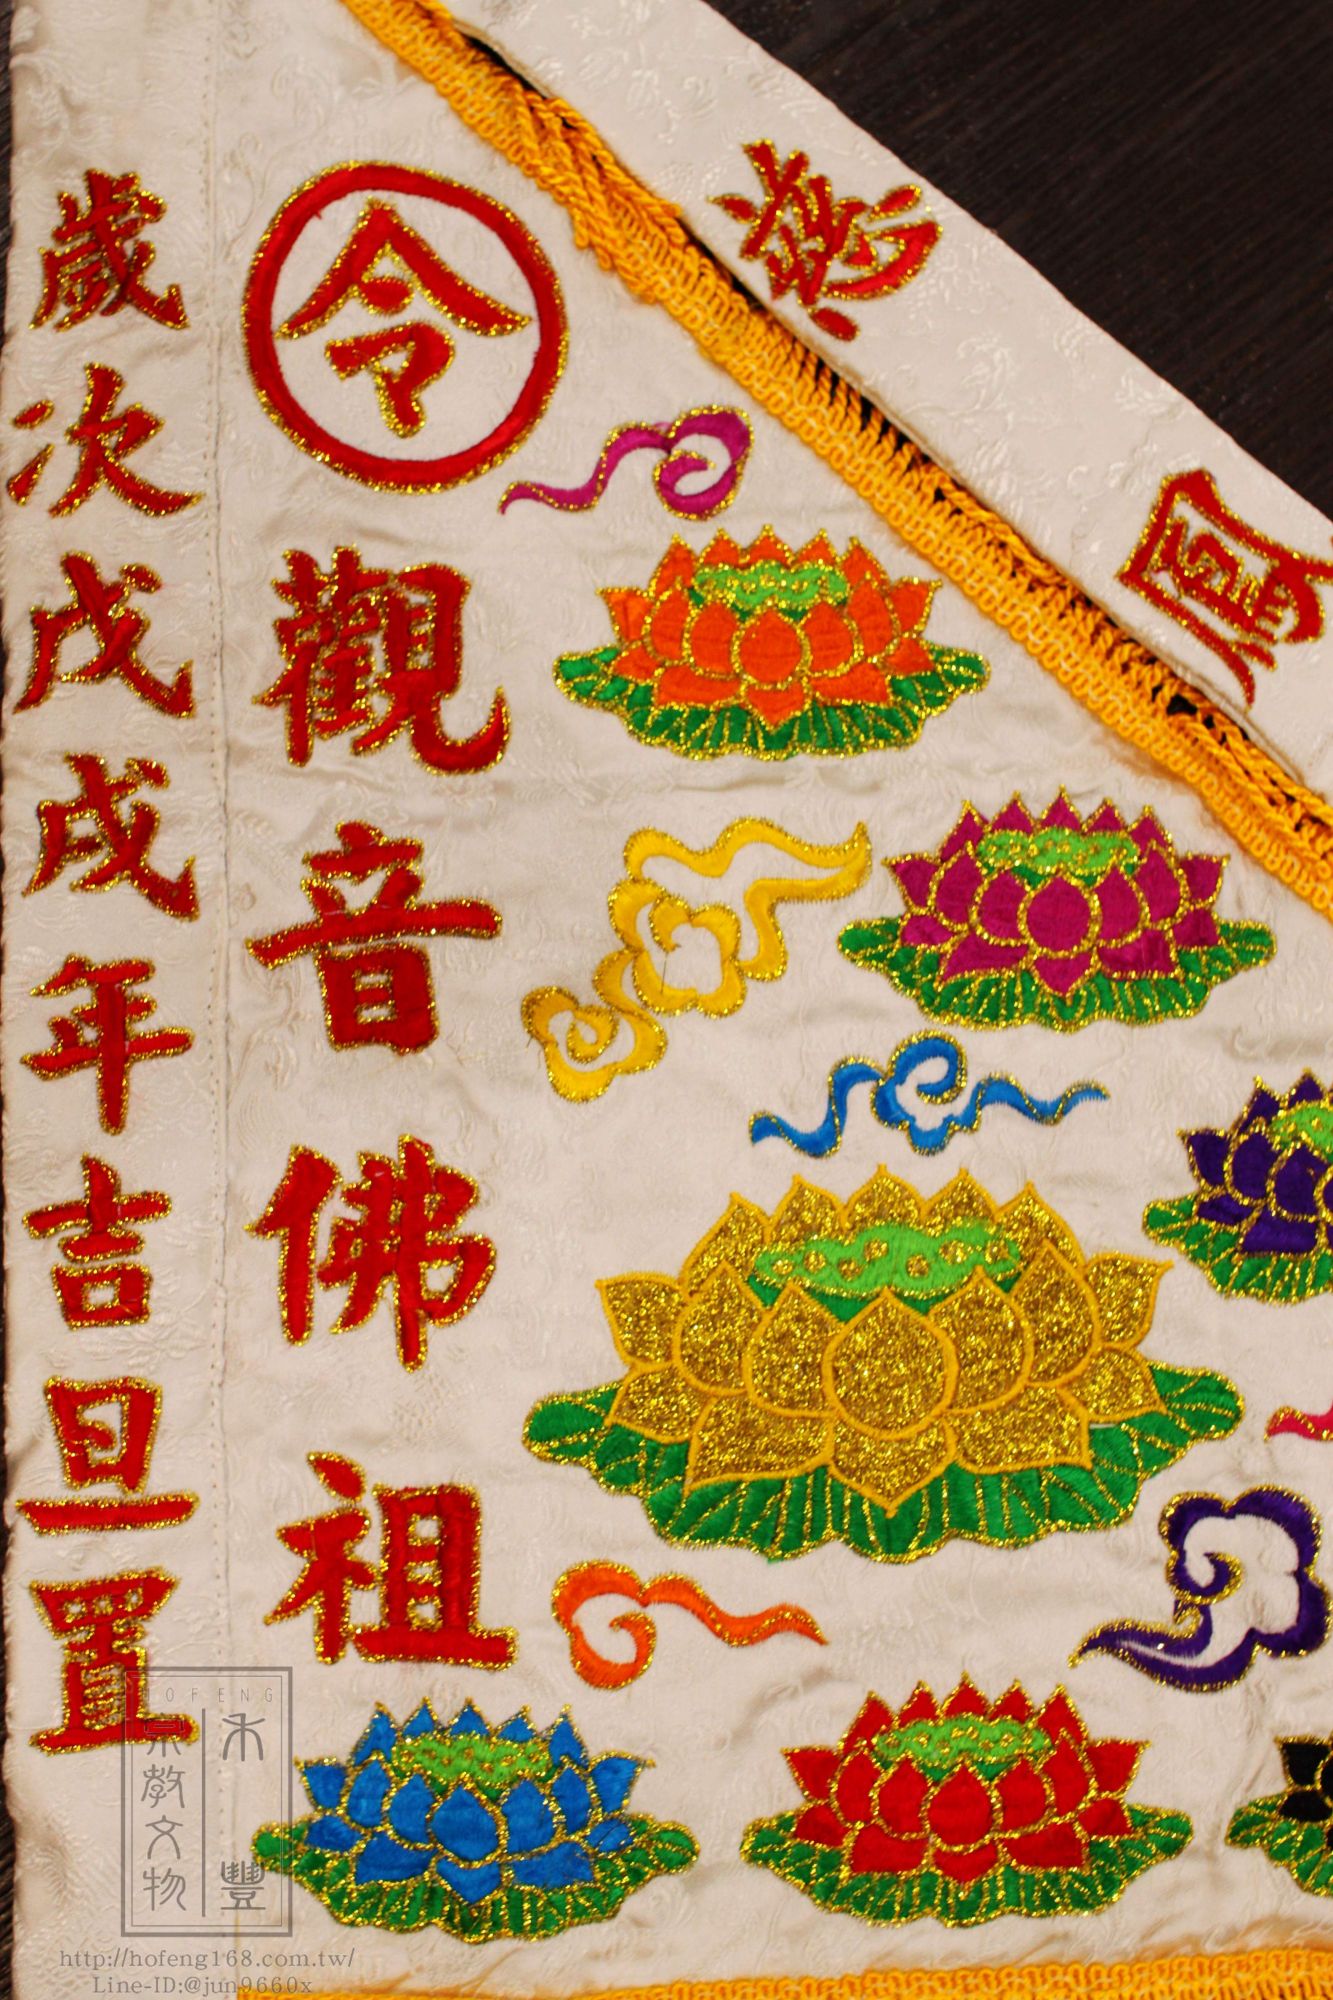 慈
令
觀音佛祖
歲次戊戌年吉旦置
HOFENG
禾豐
宗教文物
http://hofeng168.com.tw/
Line-ID:@jun9660x